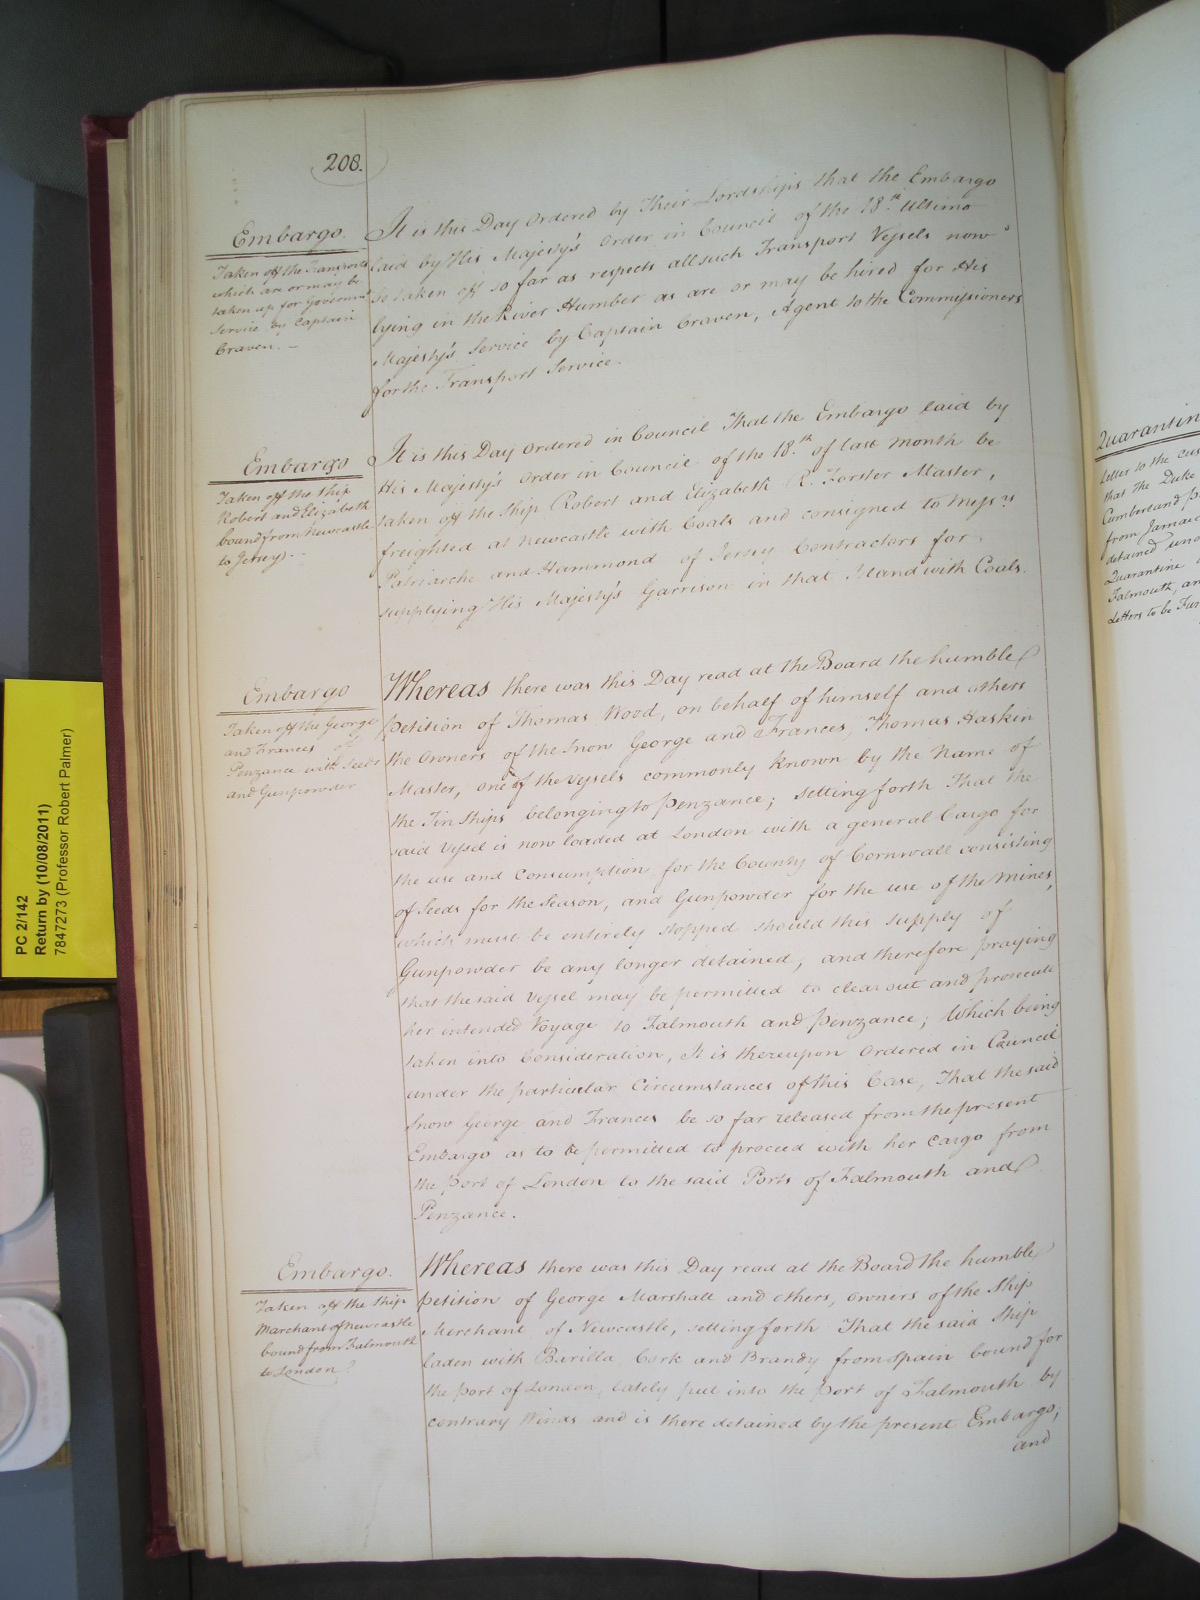 208.
Embargo.
Taken off the Transports
which are or may be
taken up for Governmt
Service by Captain
Craven. –
It is this Day Ordered by Their Lordships that the Embargo
laid by His Majesty's Order in Council of the 18.th Ultimo
be taken off so far as respects all such Transport Vessels now
lying in the River Humber as are or may be hired for His
Majesty's Service by Captain Craven, Agent to the Commissioners
for the Transport Service.
Embargo
Taken off the Ship
Robert and Elizabeth
bound from Newcastle
to Jersey. -
It is this Day Ordered in Council That the Embargo laid by
His Majesty's Order in Council of the 18.th of last Month be
taken off the Ship Robert and Elizabeth R. Forster Master,
freighted at Newcastle with Coals and consigned to Messrs
Patriarche and Hammond of Jersey Contractors for
supplying His Majesty's Garrison in that Island with Coals.
Embargo
Taken off the George
and Frances of
Penzance with Seeds
and Gunpowder
Whereas there was this Day read at the Board the humble
Petition of Thomas Wood, on behalf of himself and others
the Owners of the Snow George and Frances, Thomas Haskin
Master, one of the Vessels commonly known by the Name of
the Tin Ships belonging to Penzance; setting forth That the
said Vessel is now loaded at London with a general Cargo for
the use and Consumption for the County of Cornwall consisting
of Seeds for the Season, and Gunpowder for the use of the Mines,
which must be entirely stopped should this supply of
Gunpowder be any longer detained; and therefore praying
that the said Vessel may be permitted to clear out and prosecute
her intended Voyage to Falmouth and Penzance; Which being
taken into Consideration, It is thereupon Ordered in Council
under the particular Circumstances of this Case, That the said
Snow George and Frances be so far released from the present
Embargo as to be permitted to proceed with her Cargo from
the Port of London to the said Ports of Falmouth and
Penzance.
Embargo.
Taken off the Ship
Marchant of Newcastle
bound from Falmouth
to London
Whereas there was this Day read at the Board the humble
Petition of George Marshall and others, Owners of the Ship
Merchant of Newcastle, setting forth That the said Ship
laden with Barilla Cork and Brandy from Spain bound for
the Port of London, lately put into the Port of Falmouth by
contrary Winds and is there detained by the present Embargo;
and
PC 2/142
Return by (10/08/2011)
7847273 (Professor Robert Palmer)
Quarantin
Letter to the Cus
that the Duke
Cumberland P
from Jamaic
detained und
Quarantine
Falmouth, an
Letters to be Fur